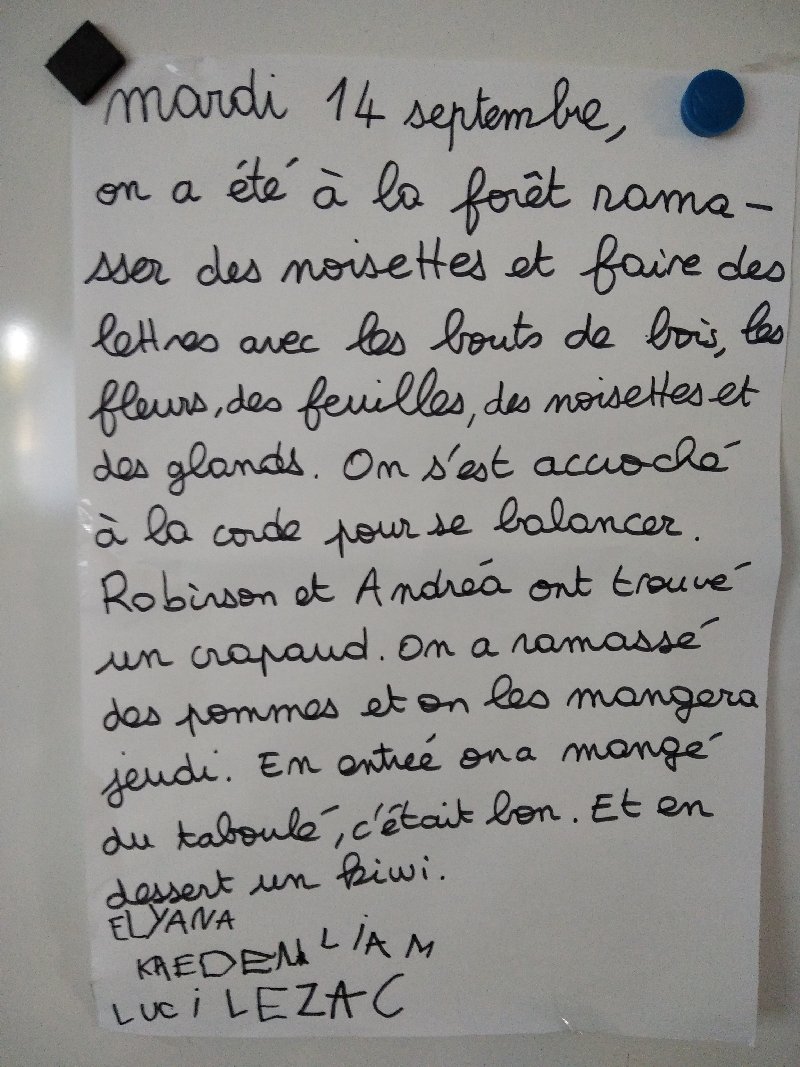 mardi 14 septembre,
on a été à la forêt rama-
sser des noisettes et faire des
lettres avec les bouts de bois, les
fleurs, des feuilles, des noisettes et
des glands. On s'est accroché
à la corde pour se balancer.
Robinson et Andréa ont trouvé
un crapaud. On a ramassé
des pommes et on les mangera
jeudi. En entrée on a mangé
du taboulé, c'était bon. Et en
dessert un kiwi.
ELYANA
KAEDEN LIAM
LUCILE ZAC